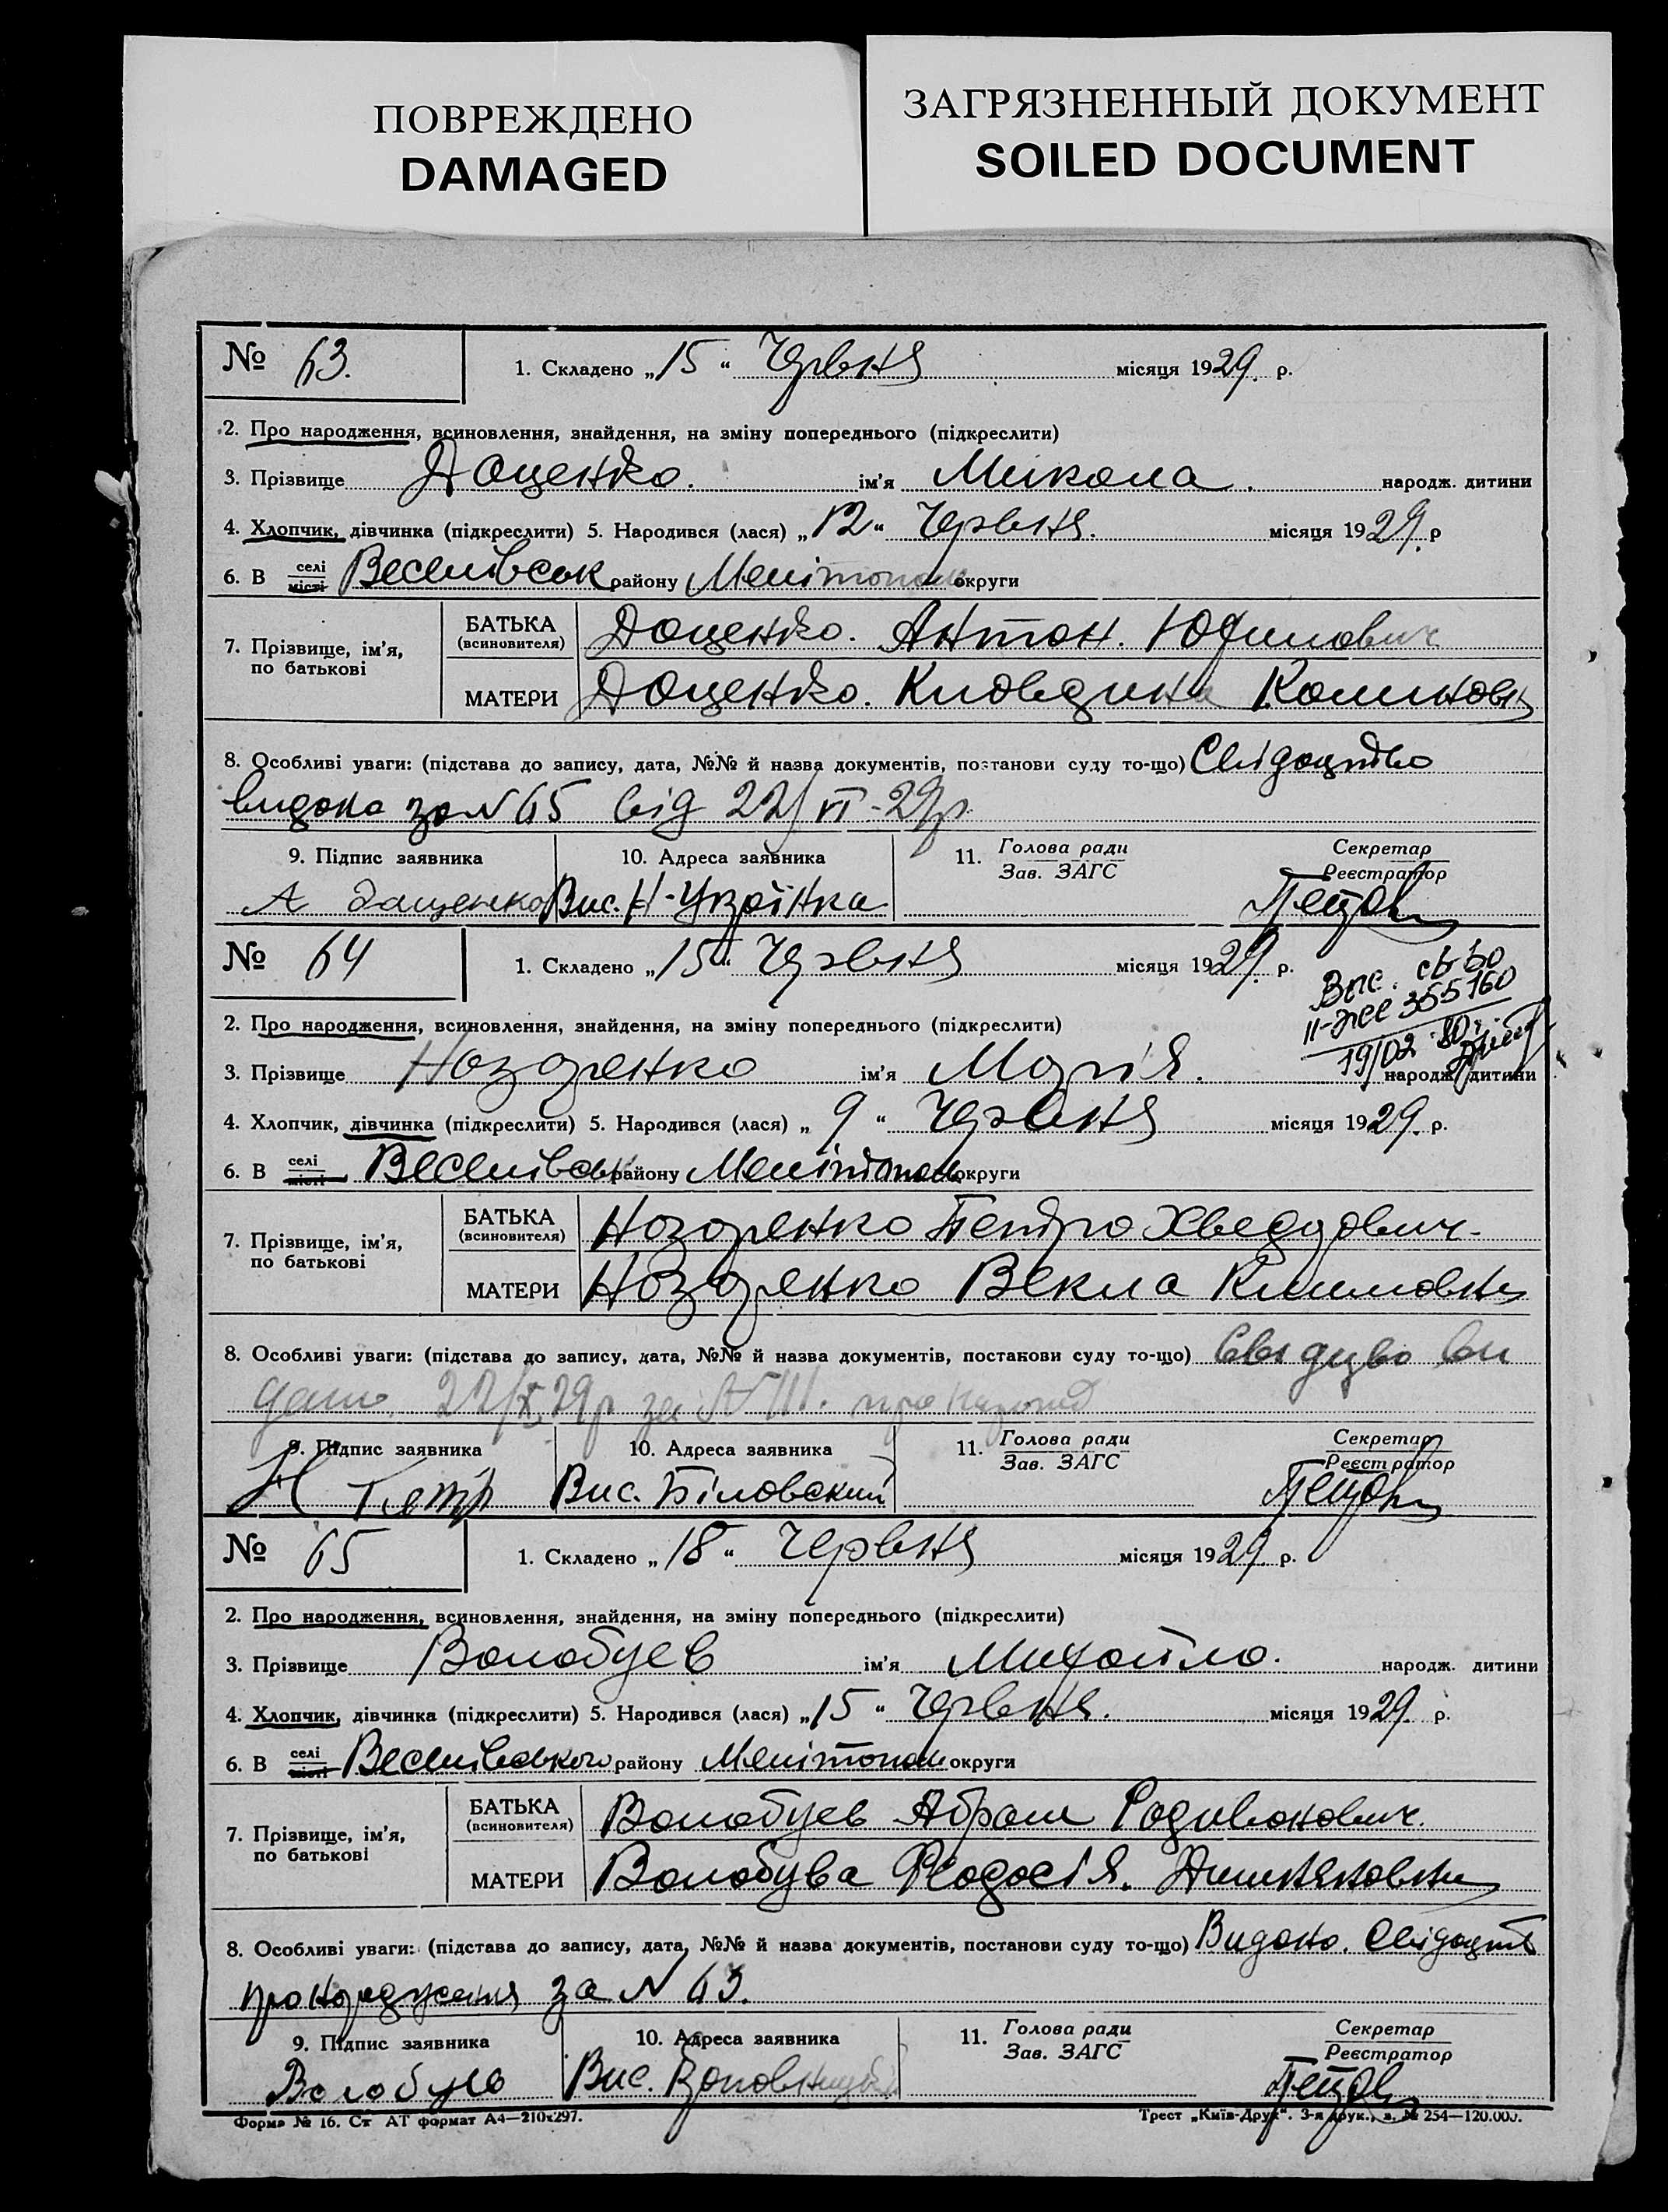 ПОВРЕЖДЕНО
DAMAGED
ЗАГРЯЗНЕННЫЙ ДОКУМЕНТ
SOILED DOCUMENT
№ 63. 1. Складено „15“ Червня місяця 1929. р.
2. Про народження, всиновлення, знайдення, на зміну попереднього (підкреслити)
3. Прізвище Доценко. ім'я Микола. народж. дитини
4. Хлопчик, дівчинка (підкреслити) 5. Народився (лася) „12“ Червня. місяця 1929. р
6. В селі місті Веселівськ району Мелітопол округи
7. Прізвище, ім'я, по батькові
БАТЬКА (всиновителя) Доценко. Антон. Юхимович
МАТЕРИ Доценко.
8. Особливі уваги: (підстава до запису, дата, №№ й назва документів, постанови суду то-що) Свідоцтво
видано за N 65 від 22/VI-29р
9. Підпис заявника 10. Адреса заявника 11. Голова ради Зав. ЗАГС Секретар Реєстратор
А Даценко Вис. Н-Українка
№ 64 1. Складено „15“ Червня місяця 1929. р.
Выс. св-во
II-ЖС 355160
19/02 80г.
2. Про народження, всиновлення, знайдення, на зміну попереднього (підкреслити)
3. Прізвище Назаренко ім'я Марія. народж. дитини
4. Хлопчик, дівчинка (підкреслити) 5. Народився (лася) „9“ Червня місяця 1929. р.
6. В селі місті Веселівськ району Мелітопол округи
7. Прізвище, ім'я, по батькові
БАТЬКА (всиновителя) Назаренко Петро Хведорович.
МАТЕРИ Назаренко Векла Климовна
8. Особливі уваги: (підстава до запису, дата, №№ й назва документів, постанови суду то-що) ви
дано. за N
9. Підпис заявника 10. Адреса заявника 11. Голова ради Зав. ЗАГС Секретар Реєстратор
Н Петр Вис. Біловский
№ 65 1. Складено „18“ Червня місяця 1929. р.
2. Про народження, всиновлення, знайдення, на зміну попереднього (підкреслити)
3. Прізвище Волобуев ім'я Михайло. народж. дитини
4. Хлопчик, дівчинка (підкреслити) 5. Народився (лася) „15“ Червня. місяця 1929. р.
6. В селі місті Веселівського району Мелітопол округи
7. Прізвище, ім'я, по батькові
БАТЬКА (всиновителя) Волобуев Абрам Родивонович.
МАТЕРИ Волобува Феодосія.
8. Особливі уваги: (підстава до запису, дата, №№ й назва документів, постанови суду то-що) Видано. Свідоцтв
про народження за N 63.
9. Підпис заявника 10. Адреса заявника 11. Голова ради Зав. ЗАГС Секретар Реєстратор
Волобуев Вис.
Форма № 16. Ст АТ формат А4—210х297. Трест „Київ-Друк“. 3-я друк., з. № 254—120.000.